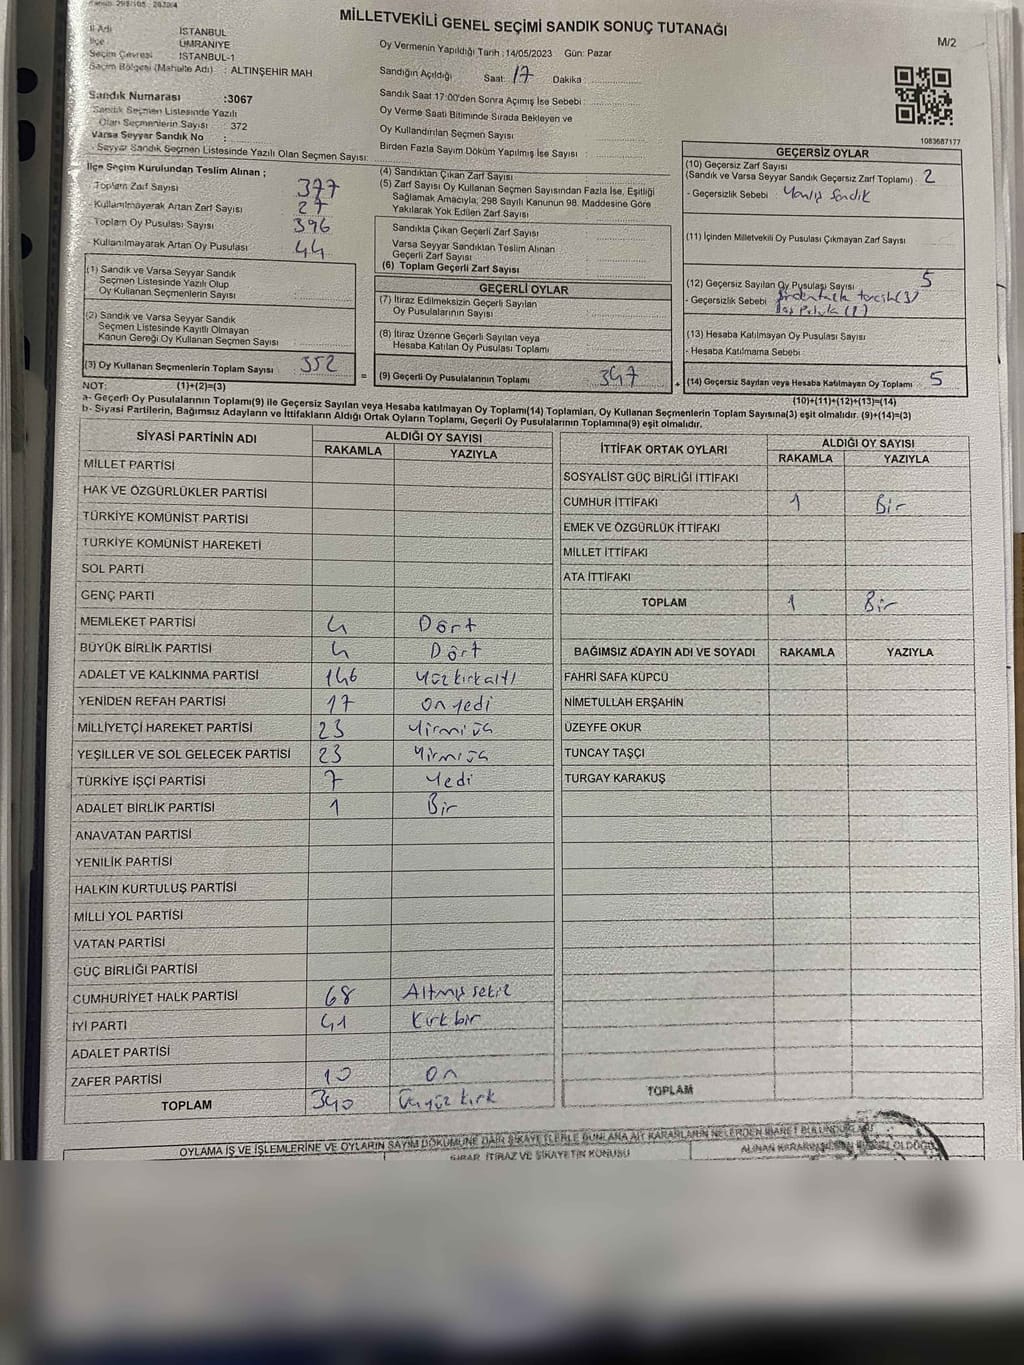 MİLLETVEKİLİ GENEL SEÇİMİ SANDIK SONUÇ TUTANAĞI
M/2
İl Adı : İSTANBUL
İlçe : ÜMRANİYE
Seçim Çevresi : İSTANBUL-1
Seçim Bölgesi (Mahalle Adı) : ALTINŞEHİR MAH
Sandık Numarası :3067
Sandık Seçmen Listesinde Yazılı
Olan Seçmenlerin Sayısı : 372
Varsa Seyyar Sandık No :
- Seyyar Sandık Seçmen Listesinde Yazılı Olan Seçmen Sayısı:
Oy Vermenin Yapıldığı Tarih : 14/05/2023 Gün: Pazar
Sandığın Açıldığı Saat: 17 Dakika :
Sandık Saat 17:00'den Sonra Açımış İse Sebebi :
Oy Verme Saati Bitiminde Sırada Bekleyen ve
Oy Kullandırılan Seçmen Sayısı :
Birden Fazla Sayım Döküm Yapılmış İse Sayısı :
1083687177
İlçe Seçim Kurulundan Teslim Alınan ;
- Toplam Zarf Sayısı 377
- Kullanılmayarak Artan Zarf Sayısı 27
- Toplam Oy Pusulası Sayısı 396
- Kullanılmayarak Artan Oy Pusulası 44
(1) Sandık ve Varsa Seyyar Sandık
Seçmen Listesinde Yazılı Olup
Oy Kullanan Seçmenlerin Sayısı :
(2) Sandık ve Varsa Seyyar Sandık
Seçmen Listesinde Kayıtlı Olmayan
Kanun Gereği Oy Kullanan Seçmen Sayısı :
(3) Oy Kullanan Seçmenlerin Toplam Sayısı : 352
(1)+(2)=(3)
(4) Sandıktan Çıkan Zarf Sayısı :
(5) Zarf Sayısı Oy Kullanan Seçmen Sayısından Fazla İse, Eşitliği
Sağlamak Amacıyla, 298 Sayılı Kanunun 98. Maddesine Göre
Yakılarak Yok Edilen Zarf Sayısı :
Sandıkta Çıkan Geçerli Zarf Sayısı :
Varsa Seyyar Sandıktan Teslim Alınan
Geçerli Zarf Sayısı :
(6) Toplam Geçerli Zarf Sayısı :
GEÇERLİ OYLAR
(7) İtiraz Edilmeksizin Geçerli Sayılan
Oy Pusulalarının Sayısı :
(8) İtiraz Üzerine Geçerli Sayılan veya
Hesaba Katılan Oy Pusulası Toplamı :
= (9) Geçerli Oy Pusulalarının Toplamı : 347
GEÇERSİZ OYLAR
(10) Geçersiz Zarf Sayısı
(Sandık ve Varsa Seyyar Sandık Geçersiz Zarf Toplamı) : 2
- Geçersizlik Sebebi : Yanlış Sandık
(11) İçinden Milletvekili Oy Pusulası Çıkmayan Zarf Sayısı
(12) Geçersiz Sayılan Oy Pusulası Sayısı : 5
- Geçersizlik Sebebi
(13) Hesaba Katılmayan Oy Pusulası Sayısı
- Hesaba Katılmama Sebebi
+ (14) Geçersiz Sayılan veya Hesaba Katılmayan Oy Toplamı : 5
(10)+(11)+(12)+(13)=(14)
NOT:
a- Geçerli Oy Pusulalarının Toplamı(9) ile Geçersiz Sayılan veya Hesaba katılmayan Oy Toplamı(14) Toplamları, Oy Kullanan Seçmenlerin Toplam Sayısına(3) eşit olmalıdır. (9)+(14)=(3)
b- Siyasi Partilerin, Bağımsız Adayların ve İttifakların Aldığı Ortak Oyların Toplamı, Geçerli Oy Pusulalarının Toplamına(9) eşit olmalıdır.
SİYASİ PARTİNİN ADI ALDIĞI OY SAYISI
RAKAMLA YAZIYLA
MİLLET PARTİSİ
HAK VE ÖZGÜRLÜKLER PARTİSİ
TÜRKİYE KOMÜNİST PARTİSİ
TÜRKİYE KOMÜNİST HAREKETİ
SOL PARTİ
GENÇ PARTİ
MEMLEKET PARTİSİ 4 Dört
BÜYÜK BİRLİK PARTİSİ 4 Dört
ADALET VE KALKINMA PARTİSİ 146 Yüzkırkaltı
YENİDEN REFAH PARTİSİ 17 Onyedi
MİLLİYETÇİ HAREKET PARTİSİ 23 Yirmi üç
YEŞİLLER VE SOL GELECEK PARTİSİ 23 Yirmi üç
TÜRKİYE İŞÇİ PARTİSİ 7 Yedi
ADALET BİRLİK PARTİSİ 1 Bir
ANAVATAN PARTİSİ
YENİLİK PARTİSİ
HALKIN KURTULUŞ PARTİSİ
MİLLİ YOL PARTİSİ
VATAN PARTİSİ
GÜÇ BİRLİĞİ PARTİSİ
CUMHURİYET HALK PARTİSİ 68 Altmış sekiz
İYİ PARTİ 41 Kırk bir
ADALET PARTİSİ
ZAFER PARTİSİ 10 On
TOPLAM 340 Üçyüz kırk
İTTİFAK ORTAK OYLARI ALDIĞI OY SAYISI
RAKAMLA YAZIYLA
SOSYALİST GÜÇ BİRLİĞİ İTTİFAKI
CUMHUR İTTİFAKI 1 Bir
EMEK VE ÖZGÜRLÜK İTTİFAKI
MİLLET İTTİFAKI
ATA İTTİFAKI
TOPLAM 1 Bir
BAĞIMSIZ ADAYIN ADI VE SOYADI RAKAMLA YAZIYLA
FAHRİ SAFA KÜPCÜ
NİMETULLAH ERŞAHİN
ÜZEYFE OKUR
TUNCAY TAŞÇI
TURGAY KARAKUŞ
TOPLAM
OYLAMA İŞ VE İŞLEMLERİNE VE OYLARIN SAYIM DÖKÜMÜNE DAİR ŞİKAYETLERLE BUNLARA AİT KARARLARIN NELERDEN İBARET BULUNDUĞU
İTİRAZ VE ŞİKAYETİN KONUSU